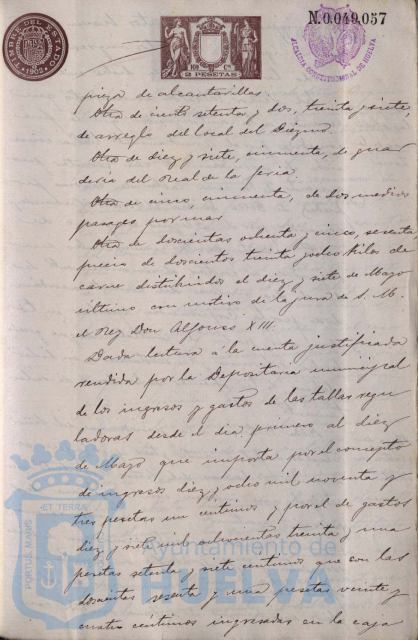 TIMBRE DEL ESTADO
1902
2 PESETAS
N.0.049,057
ALCALDIA CONSTITUCIONAL DE HUELVA
pieza de alcantarillas.
Otra de ciento setenta y dos, treinta y siete,
de arreglo del local del Diezmo.
Otra de diez y siete, cincuenta, de guar
deria del Real de la feria.
Otra de cinco, cincuenta, de dos medios
pasages por mar
Otra de doscientas ochenta y cinco, sesenta
precio de doscientos treinta y ocho kilos de
carne distribuidos el diez y siete de Mayo
último con motivo de la jura de S. M.
el Rey Don Alfonso XIII.
Dada lectura á la cuenta justificada
rendida por la Depositaria municipal
de los ingresos y gastos de las tablas regu
ladoras desde el dia primero al diez
de Mayo que importa por el concepto
de ingresos diez y ocho mil noventa y
tres pesetas un centimos y por el de gastos
diez y siete mil ochocientos treinta y una
pesetas setenta y siete centimos que con las
doscientas sesenta y una pesetas veinte y
cuatro céntimos ingresadas en la caja
PORTUS MARIS ET TERRAE
Ayuntamiento de
HUELVA